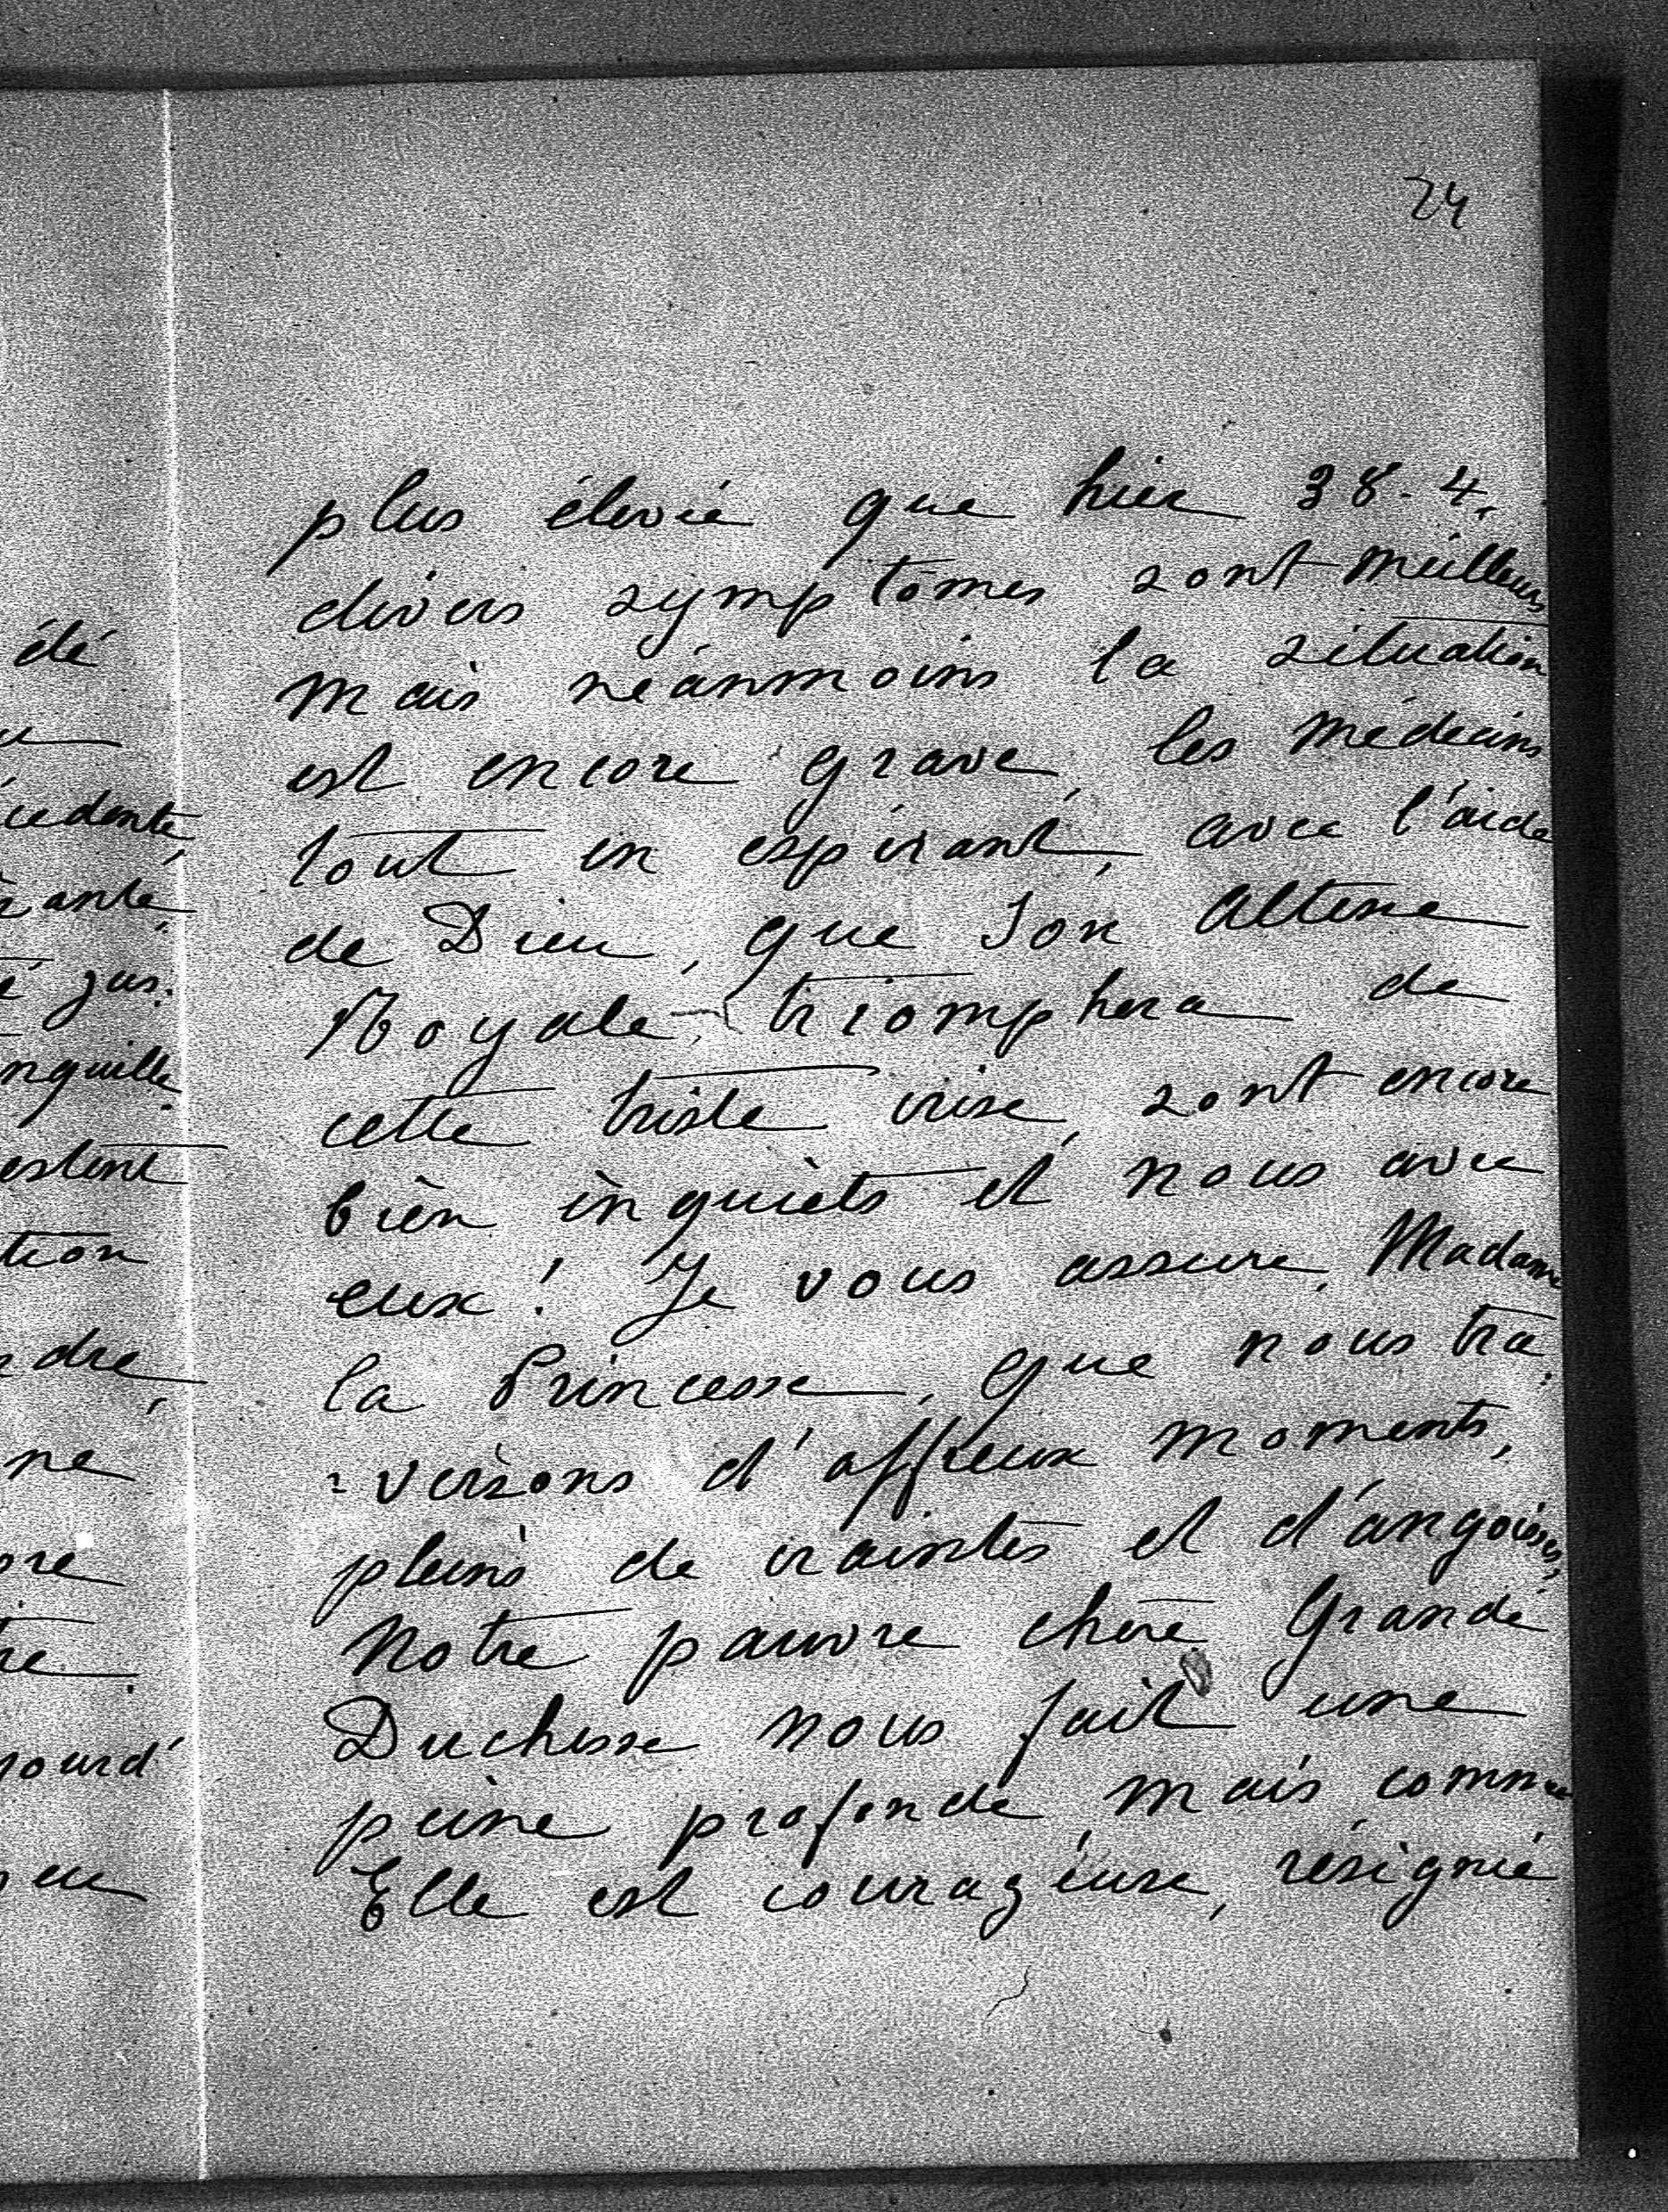 24
plus élevée que hier 38.4,
divers symptômes sont meilleurs
mais néanmoins la situation
est encore grave, les médecins
tout en espérant, avec l'aide
de Dieu, que Son Altesse
Royale, triomphera de
cette triste crise, sont encore
bien inquiets et nous avec
eux! Je vous assure, Madame
la Princesse, que nous tra=
=versons d'affreux moments,
pleins de craintes et d'angoisses,
Notre pauvre chère Grande
Duchesse nous fait une
peine profonde, mais comme
Elle est courageuse, résignée
dé
cedente,
ante,
é jus=
nquille.
estent
tion
dre,
ne
ourd'